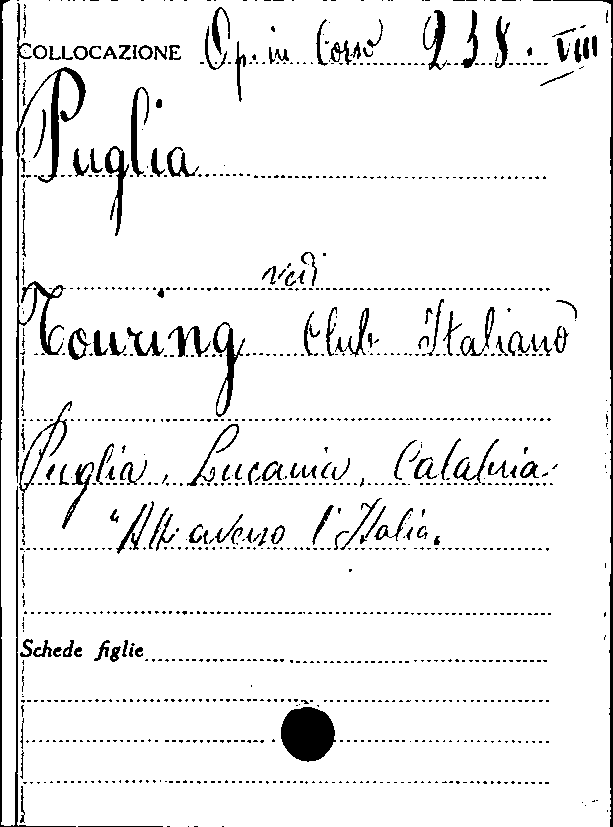 COLLOCAZIONE Op. in Corso 238. VIII
Puglia
vedi
Touring Club Italiano
Puglia, Lucania, Calabria.
"Attraverso l'Italia.
Schede figlie